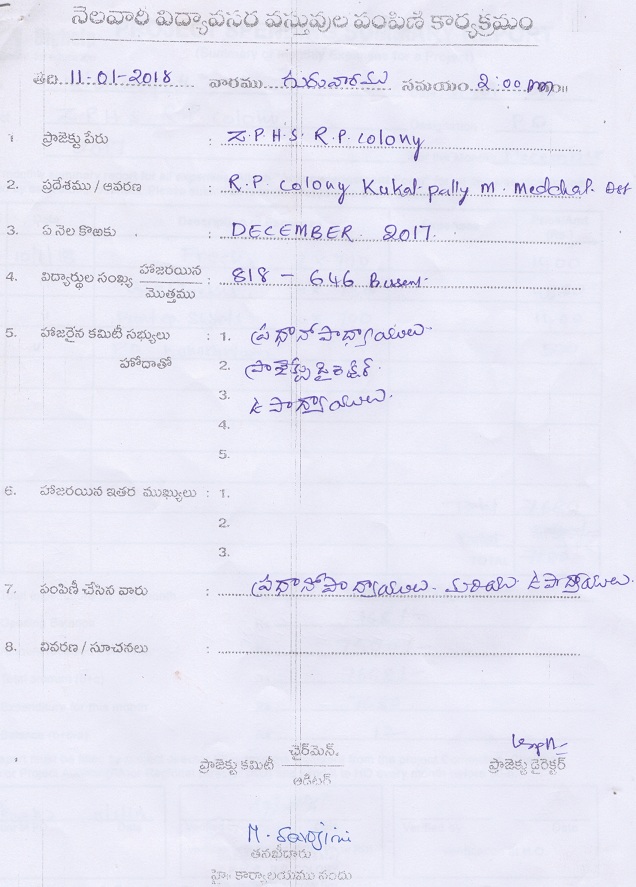 నెలవారి విద్యావసర వస్తువుల పంపిణి కార్యక్రమం
తేది 11-01-2018 వారము గురువారము సమయం 2:00 pm
1 ప్రాజెక్టు పేరు : Z.P.H.S. R.P. colony
2. ప్రదేశము / ఆవరణ : R.P. colony Kukat pally M. Medchal. Dst
3. ఏ నెల కొఱకు : DECEMBER 2017.
4. విద్యార్థుల సంఖ్య హాజరయిన / మొత్తము : 818 - 646
5. హాజరైన కమిటీ సభ్యులు : 1. ప్రధానోపాధ్యాయులు
హోదాతో 2. ప్రాజెక్టు డైరెక్టర్.
3. ఉపాధ్యాయులు.
4.
5.
6. హాజరయిన ఇతర ముఖ్యులు : 1.
2.
3.
7. పంపిణీ చేసిన వారు : ప్రధానోపాధ్యాయులు. మరియు ఉపాధ్యాయులు.
8. వివరణ / సూచనలు :
ప్రాజెక్టు కమిటీ ఛైర్‌మెన్ / ఆడిటర్ ప్రాజెక్టు డైరెక్టర్
M. Sarojini
తనిఖీదారు
హై కార్యాలయము నందు